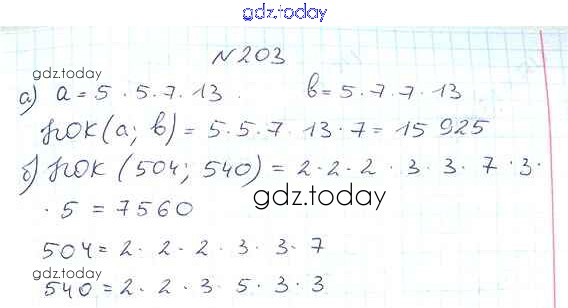 gdz.today
N203
gdz.today
а) a = 5 · 5 · 7 · 13. b = 5 · 7 · 7 · 13
НОК (a; b) = 5 · 5 · 7 · 13 · 7 = 15 925
б) НОК (504; 540) = 2 · 2 · 2 · 3 · 3 · 7 · 3 ·
· 5 = 7560
gdz.today
504 = 2 · 2 · 2 · 3 · 3 · 7
gdz.today
540 = 2 · 2 · 3 · 5 · 3 · 3